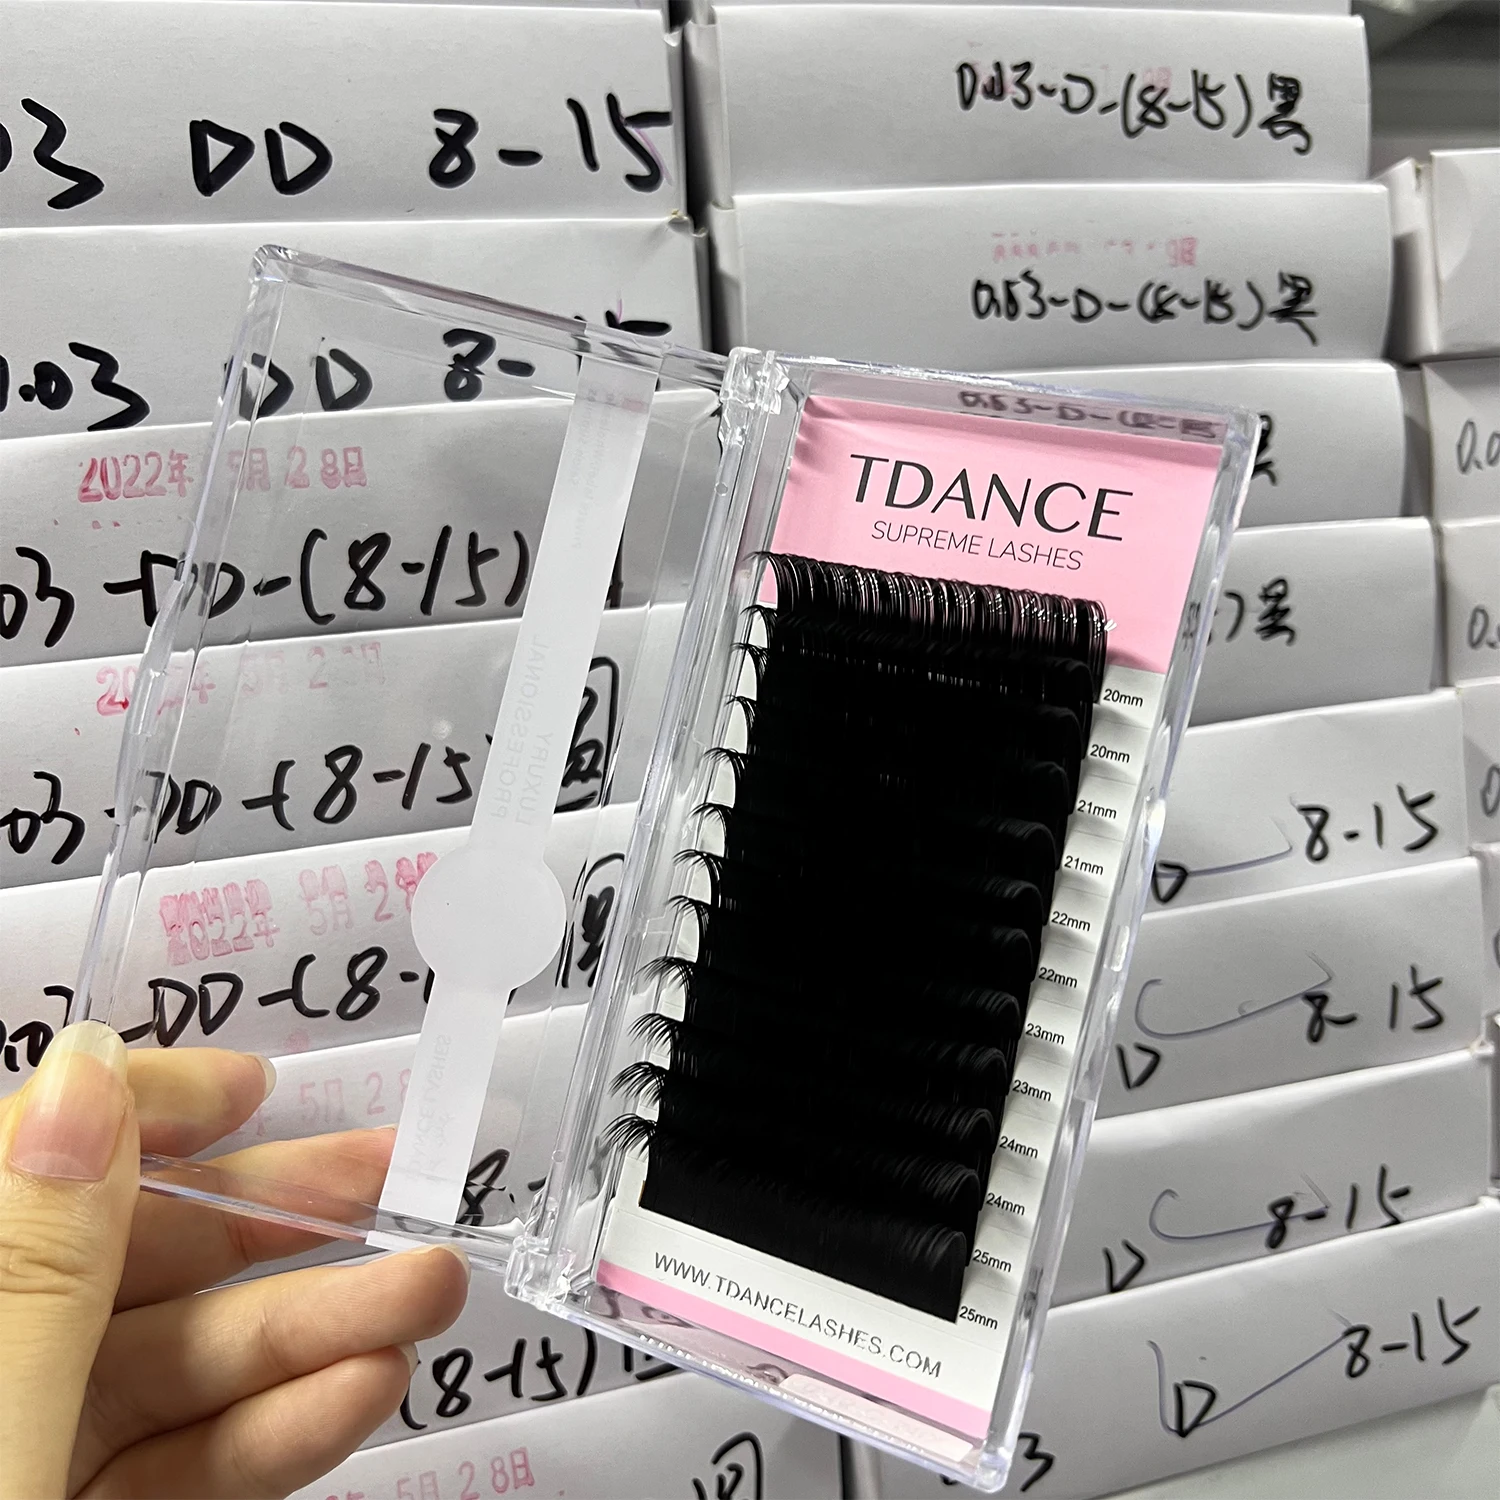 03 DD 8-15
0.03 DD 8-15
2022年 5月28日
03-DD-(8-15)
2022年 5月2 8日
03-DD-(8-15)
2022年 5月28
0.03-DD-(8-
5月28
(8-15)
5月28日
0.03-D-(8-15)黑
0.03-D-(8-15)黑
黑
黑
D 8-15
D 8-15
D 8-15
D 8-15
TDANCE
SUPREME LASHES
20mm
20mm
21mm
21mm
22mm
22mm
23mm
23mm
24mm
24mm
25mm
25mm
WWW.TDANCELASHES.COM
LUXURY
PROFESSIONAL